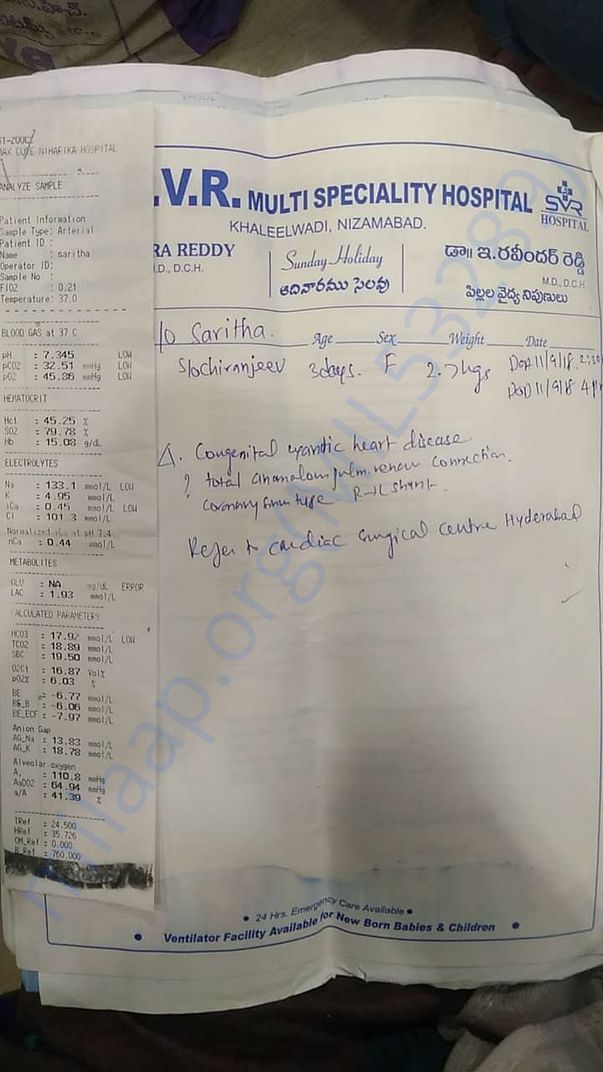 MAX CURE-NIHARIKA HOSPITAL
ANALYZE SAMPLE
Patient Information
Sample Type: Arterial
Patient ID :
Name : saritha
Operator ID:
Sample No :
FIO2 : 0.21
Temperature: 37.0
BLOOD GAS at 37 C
pH : 7.345 LOW
pCO2 : 32.51 mmHg LOW
pO2 : 45.86 mmHg LOW
HEMATOCRIT
Hct : 45.25 %
SO2 : 79.78 %
Hb : 15.08 g/dL
ELECTROLYTES
Na : 133.1 mmol/L LOW
K : 4.95 mmol/L
iCa : 0.45 mmol/L LOW
Cl : 101.3 mmol/L
Normalized iCa at pH 7.4
nCa : 0.44 mmol/L
METABOLITES
GLU : NA mg/dL ERROR
LAC : 1.93 mmol/L
CALCULATED PARAMETERS
HCO3 : 17.92 mmol/L LOW
TCO2 : 18.89 mmol/L
SBC : 19.50 mmol/L
O2Ct : 16.87 Vol%
pO2% : 6.03 %
BE : -6.77 mmol/L
BE_B : -6.06 mmol/L
BE_ECF : -7.97 mmol/L
Anion Gap
AG_Na : 13.83 mmol/L
AG_K : 18.78 mmol/L
Alveolar oxygen
A, : 110.8 mmHg
AaDO2 : 64.94 mmHg
a/A : 41.39 %
TRef : 24.500
HRef : 35.726
OM_Ref : 0.000
B_Ref : 760.000
.V.R. MULTI SPECIALITY HOSPITAL
SVR
HOSPITAL
KHALEELWADI, NIZAMABAD.
RA REDDY
.D., D.C.H.
Sunday Holiday
ఆదివారము సెలవు
డా॥ ఇ.రవీందర్ రెడ్డి
M.D., D.C.H.
పిల్లల వైద్య నిపుణులు
/o Saritha. Age Sex Weight Date
S/o chiranjeev 3days. F 2.7 kgs DOA 11/9/18
DOD 11/9/18
Δ. Congenital cyanotic heart disease
? total anamalous pulm. venous connection.
coronary sinus type R→L shunt
Refer to cardiac surgical centre Hyderabad
• 24 Hrs. Emergency Care Available •
• Ventilator Facility Available for New Born Babies & Children •
milaap.org(MIL53289)